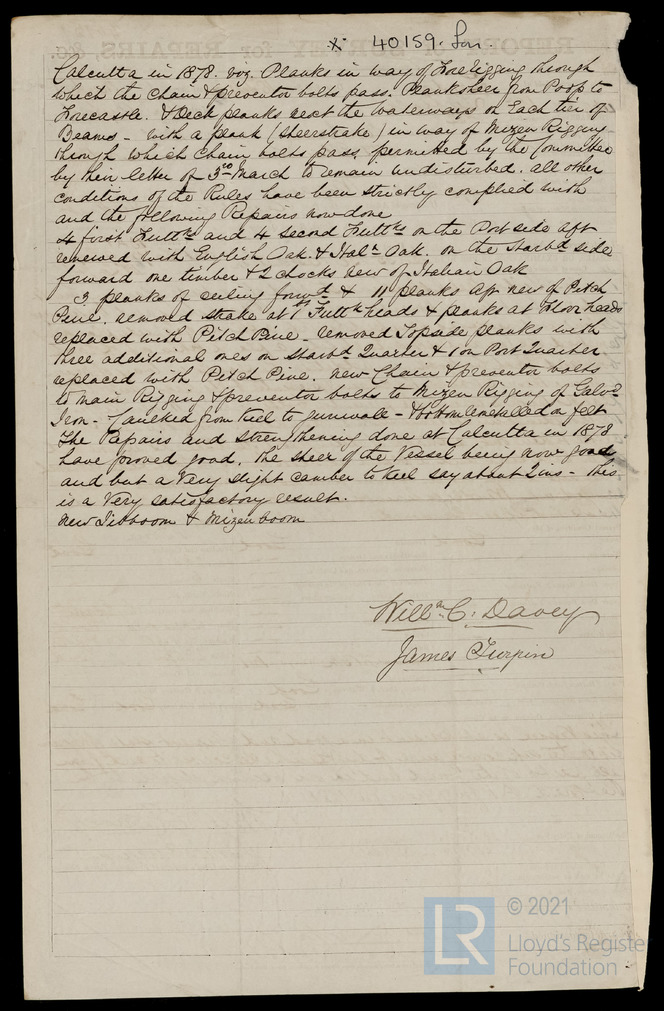 X 40159. Lon.
Calcutta in 1878. viz. Planks in way of Fore rigging through
which the Chain & preventor bolts pass. Planksheer from Poop to
Forecastle. & Deck planks next the Waterways on Each tier of
Beams - with a plank (sheerstrake) in way of Mizen Rigging
through which Chain bolts pass, permitted by the Committee
by their letter of 3rd March to remain undisturbed. all other
conditions of the Rules have been strictly complied with
and the following Repairs now done
4 first Futtks and 4 second Futtks on the Port side aft
renewed with English Oak & Italn Oak. on the Starbd side
forward one timber & 2 chocks new of Italian Oak
3 planks of ceiling forwd & 11 planks aft new of Pitch
Pine. removed strake at 1st Futtk heads & planks at Floor heads
replaced with Pitch Pine - removed Topside planks with
three additional ones on Starbd Quarter & 1 on Port Quarter
replaced with Pitch Pine. New Chain & preventor bolts
to main Rigging & preventor bolts to Mizen Rigging of Galvd
Iron - Caulked from Keel to gunwale - & bottom metalled on felt
The Repairs and strengthening done at Calcutta in 1878
have proved good, the sheer of the Vessel being now good
and but a Very slight camber to keel say about 2 ins - this
is a Very satisfactory result.
New Jibboom & Mizen boom
Willm C. Davey
James Turpin
LR
© 2021
Lloyd's Registe
Foundation